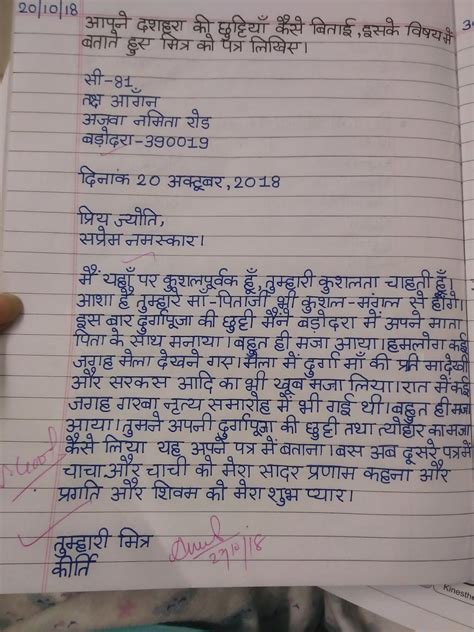 20/10/18
आपने दशहरा की छुट्टियाँ कैसे बिताई, इसके विषय में
बताते हुस मित्र को पत्र लिखिए।
सी-81
त्क्ष आगँन
अजवा नमिता रोड
बड़ोदरा-390019
दिनांक 20 अक्टूबर, 2018
प्रिय ज्योति,
सप्रेम नमस्कार।
मैं यहाँ पर कुशलपूर्वक हूँ, तुम्हारी कुशलता चाहती हूँ,
आशा है तुम्हारे मा-पिताजी भी कुशल-मंगल से होंगे।
इस बार दुर्गापूजा की छुट्टी मैंने बड़ोदरा में अपने माता
पिता के साथ मनाया। बहुत ही मजा आया। हमलोग कई
जगह मेला देखने गए। मेला में दुर्गा माँ की देखी
और सरकस आदि का भी खूब मजा लिया। रात में कई
जगह गरबा नृत्य समारोह में भी गई थी। बहुत ही मजा
आया। तुमने अपनी दुर्गापूजा की छुट्टी तथा त्योहार का मजा
कैसे लिया यह अपने पत्र में बताना। बस अब दूसरे पत्र में
चाचा और चाची को मेरा सादर प्रणाम कहना और
प्रगति और शिवम को मेरा शुभ प्यार।
Good
तुम्हारी मित्र
कीर्ति
27/10/18
Kinesthe